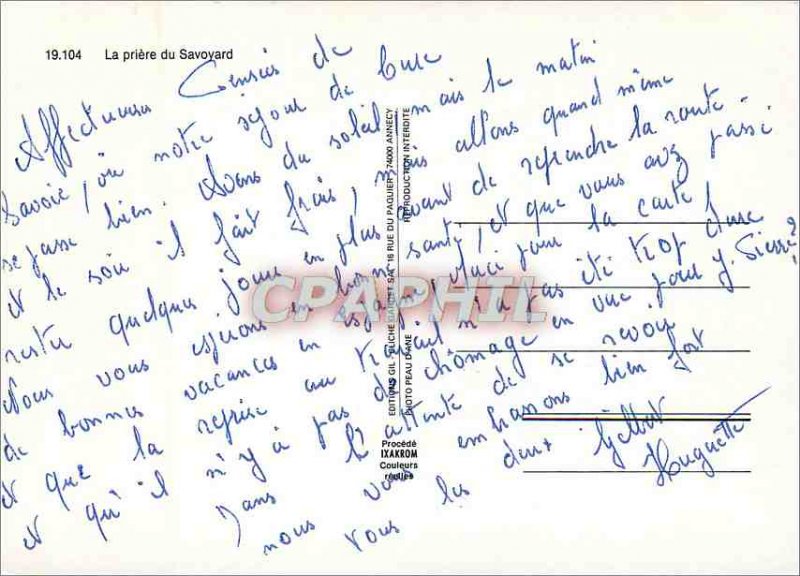 19.104 La prière du Savoyard
Affectueuses Pensées de
Savoie, où notre séjour de cure
se passe bien. Avons du soleil, mais le matin
et le soir il fait frais, nous allons quand même
rester quelques jours en plus avant de reprendre la route.
Nous vous espérons en bonne santé, et que vous avez passé
de bonnes vacances en Espagne, Merci pour la carte!
et que la reprise au travail n'a pas été trop dure
et qu'il n'y a pas de chômage en vue pour J. Pierre?
Dans l'attente de se revoir
nous vous embrassons bien fort
vous les deux Gilbert
Huguette
EDITIONS GIL - CLICHE GAUDET SA 16 RUE DU PAQUIER 74000 ANNECY
PHOTO PEAU D'ANE REPRODUCTION INTERDITE
Procédé
IXAKROM
Couleurs
réelles
CPAPHIL